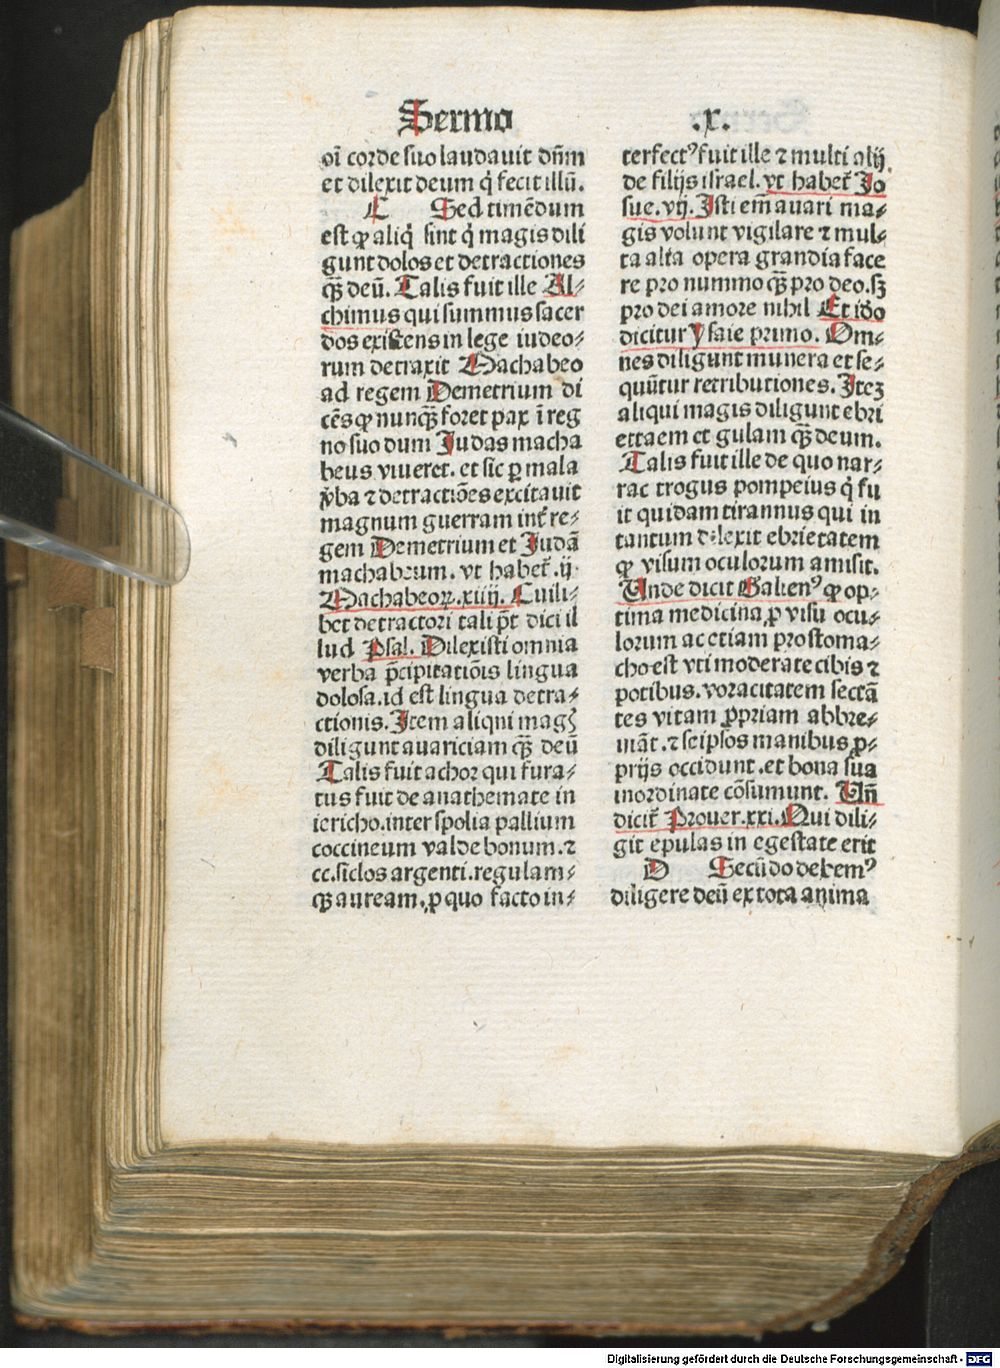 Sermo .x.
oī corde suo laudauit dn̄m
et dilexit deum q̇ fecit illū.
C Sed timēdum
est ꝙ aliq̇ sint q̇ magis dili
gunt dolos et detractiones
qꝫ̄ deū. Talis fuit ille Al⸗
chimus qui summus sacer
dos existens in lege iudeo⸗
rum detraxit Machabeo
ad regem Demetrium di
cēs ꝙ nunqꝫ̄ foret pax ī reg
no suo dum Judas macha
beus viueret. et sic ꝑ mala
v̓ba ⁊ detractiōes excitauit
magnum guerram int̄ re⸗
gem Demetrium et Judā
machabeum. vt habet̄ .ij
Machabeoꝝ.xiiij. Cuili⸗
bet detractori tali pn̄t dici il
lud Psal. Dilexisti omnia
verba p̄cipitatiōis lingua
dolosa.id est lingua detra⸗
ctionis. Item aliqui magꝭ
diligunt auariciam qꝫ̄ deū
Talis fuit achor qui fura⸗
tus fuit de anathemate in
iericho.inter spolia pallium
coccineum valde bonum. ⁊
cc.siclos argenti.regulam⸗
qꝫ auream.ꝑ quo facto in⸗
terfectꝰ fuit ille ⁊ multi alij
de filijs israel. vt habet̄ Jo
sue.vij. Isti em̄ auari ma⸗
gis volunt vigilare ⁊ mul⸗
ta alta opera grandia face
re pro nummo qꝫ̄ pro deo.sꝫ
pro dei amore nihil Et iō
dicitur Ysaie primo. Om⸗
nes diligunt munera et se⸗
quūtur retributiones. Itez
aliqui magis diligunt ebri
ettaem et gulam qꝫ̄ deum.
Talis fuit ille de quo nar⸗
rac trogus pompeius q̇ fu
it quidam tirannus qui in
tantum dilexit ebrietatem
ꝙ visum oculorum amisit.
Unde dicit Galienꝰ ꝙ op⸗
tima medicina ꝓ visu ocu⸗
lorum ac etiam pro stoma⸗
cho est vti moderate cibis ⁊
potibus. voracitatem sectā
tes vitam ꝓpriam abbre⸗
uiāt. ⁊ seipsos manibus ꝓ⸗
prijs occidunt .et bona sua
inordinate cōsumunt. Un̄
dicit̄ Prouer.xxi. Qui dili⸗
git epulas in egestate erit
D Secūdo debemꝰ
diligere deū ex tota anima
Digitalisierung gefördert durch die Deutsche Forschungsgemeinschaft - DFG